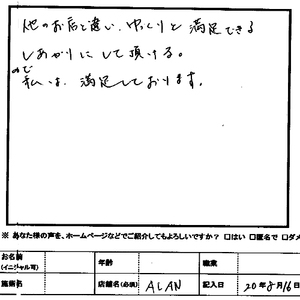 他のお店と違い、ゆっくりと満足できる
しあがりにして頂ける。
ので
私は、満足しております。
※ あなた様の声を、ホームページなどでご紹介してもよろしいですか？ □はい □匿名で □ダメ
お名前
(イニシャル可)
年齢
職業
施術名
店舗名(必須)
ALAN
記入日
20年8月16日